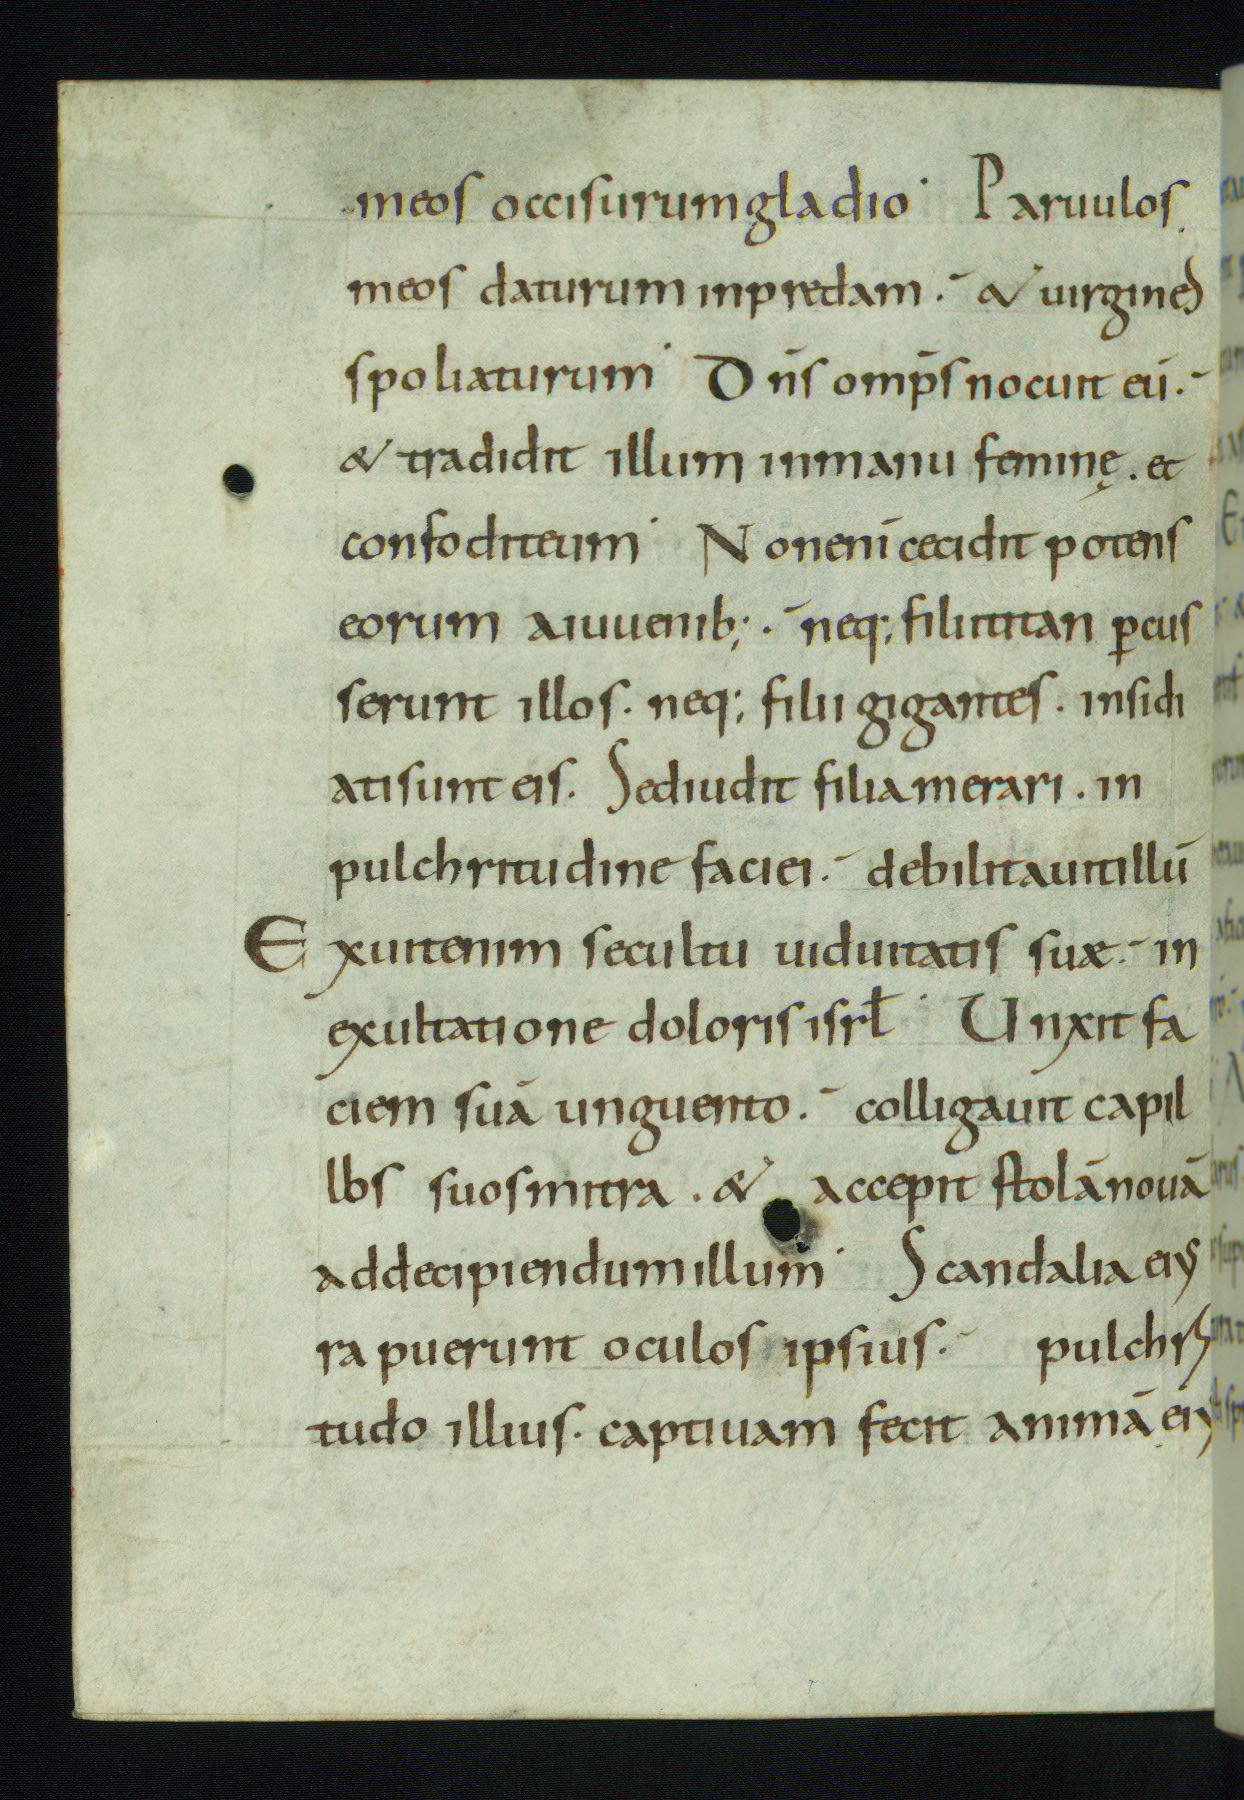 meos occisurum gladio· Paruulos
meos daturum inpredam. & uirgines
spoliaturum· Dn̄s omp̄s nocuit eū.
& tradidit illum inmanu feminę. et
confoditeum· Nonenī cecidit potens
eorum aiuuenib; . neq; filiititan ꝑcus
serunt illos. neq; filii gigantes. insidi
atisunt eis. Sediudit filiamerari. in
pulchritudine faciei. debilitauitillū
Exuitenim secultu uiduitatis suæ. in
exultatione doloris isrł· Unxit fa
ciem suā unguento. colligauit capil
los suosmitra. & accepit stolānouā
addecipiendumillum· Scandalia eius
rapuerunt oculos ipsius. pulchri
tudo illius. captiuam fecit animā eius